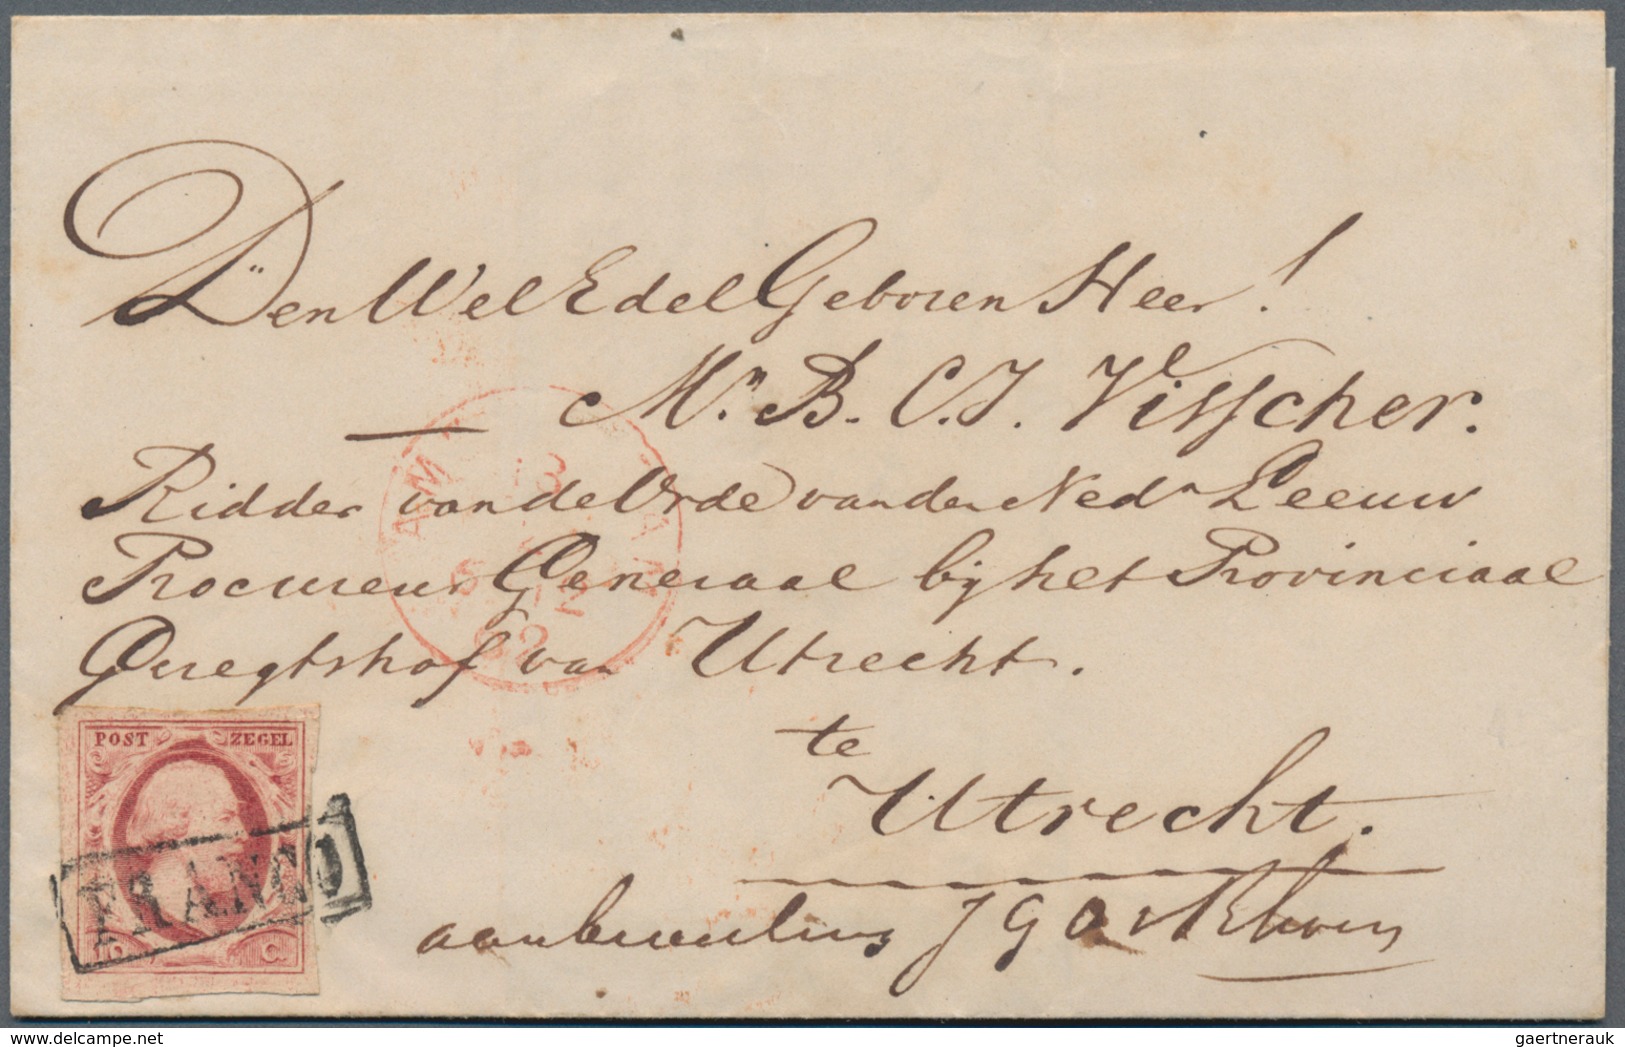 Den Wel Edel Geboren Heer!
Mr. B. C. J. Visscher.
Ridder van de Orde van den Ned Leeuw
Procureur Generaal bij het Provinciaal
Geregtshof van Utrecht.
te
Utrecht.
AM
13
12
62
POST ZEGEL
FRANCO
10 C
aanbeveling J G A
gaertnerauk @ www.delcampe.net